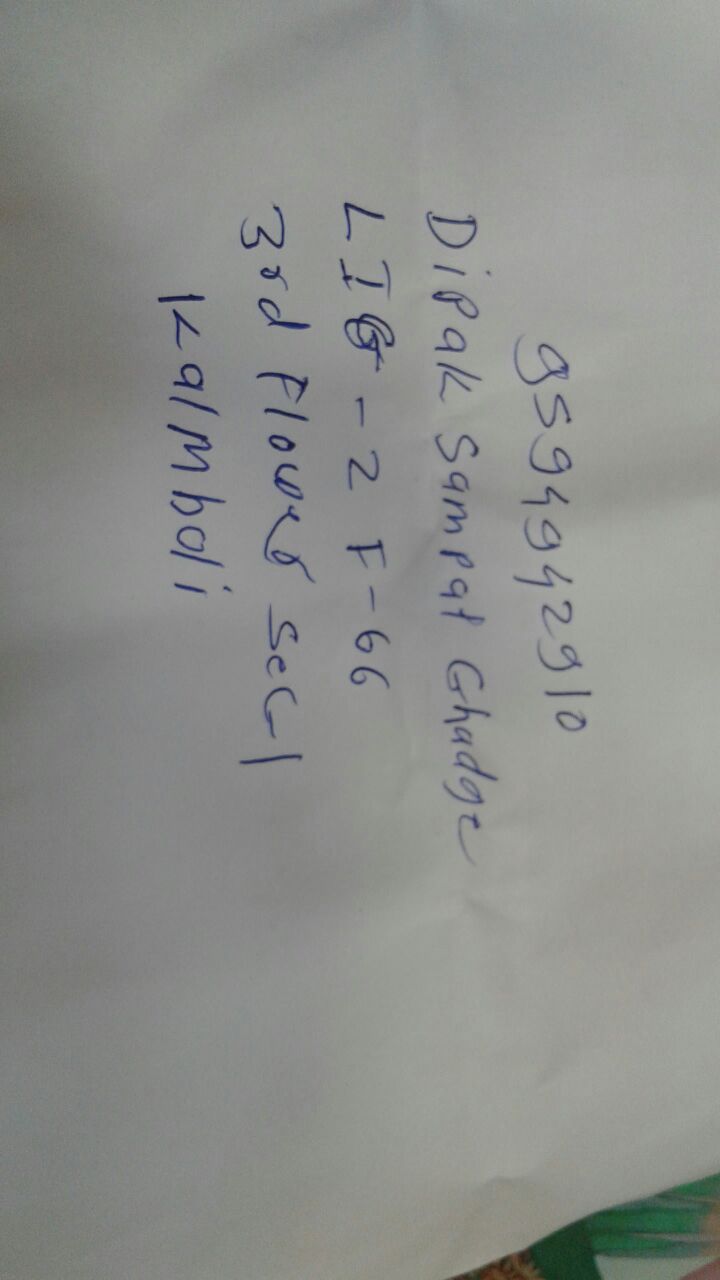 9594942910
Dipak Sampat Ghadge
LIG - 2 F-66
3rd Flower Sec 1
Kalmboli